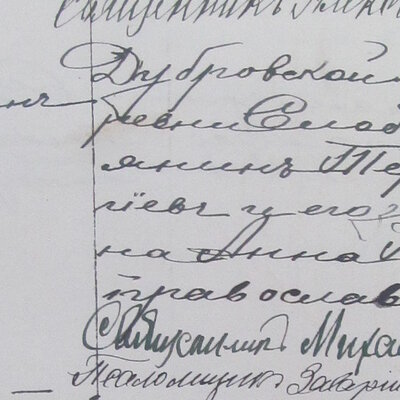 Священникъ Алек
Дубровской
ревни Слаб
янинъ Тер
іевъ и его з
на Анна
православ
Священникъ Миха
Псаломщикъ Захарі